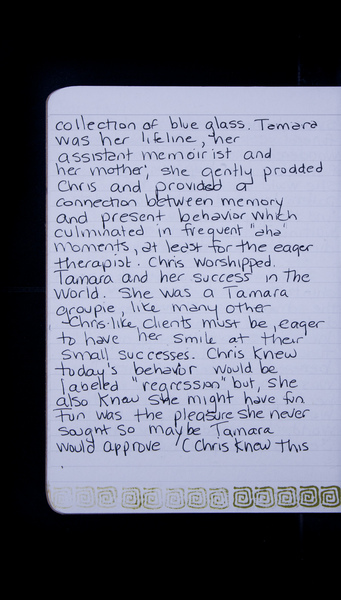 collection of blue glass. Tamara
was her lifeline, her
assistant memoirist and
her mother; she gently prodded
Chris and provided a
connection between memory
and present behavior which
culminated in frequent "aha"
moments, at least for the eager
therapist. Chris worshipped.
Tamara and her success in the
world. She was a Tamara
groupie, like many other
Chris-like clients must be, eager
to have her smile at their
small successes. Chris knew
today's behavior would be
labeled "regression" but, she
also knew she might have fun
Fun was the pleasure she never
sought so maybe Tamara
would approve (Chris knew this